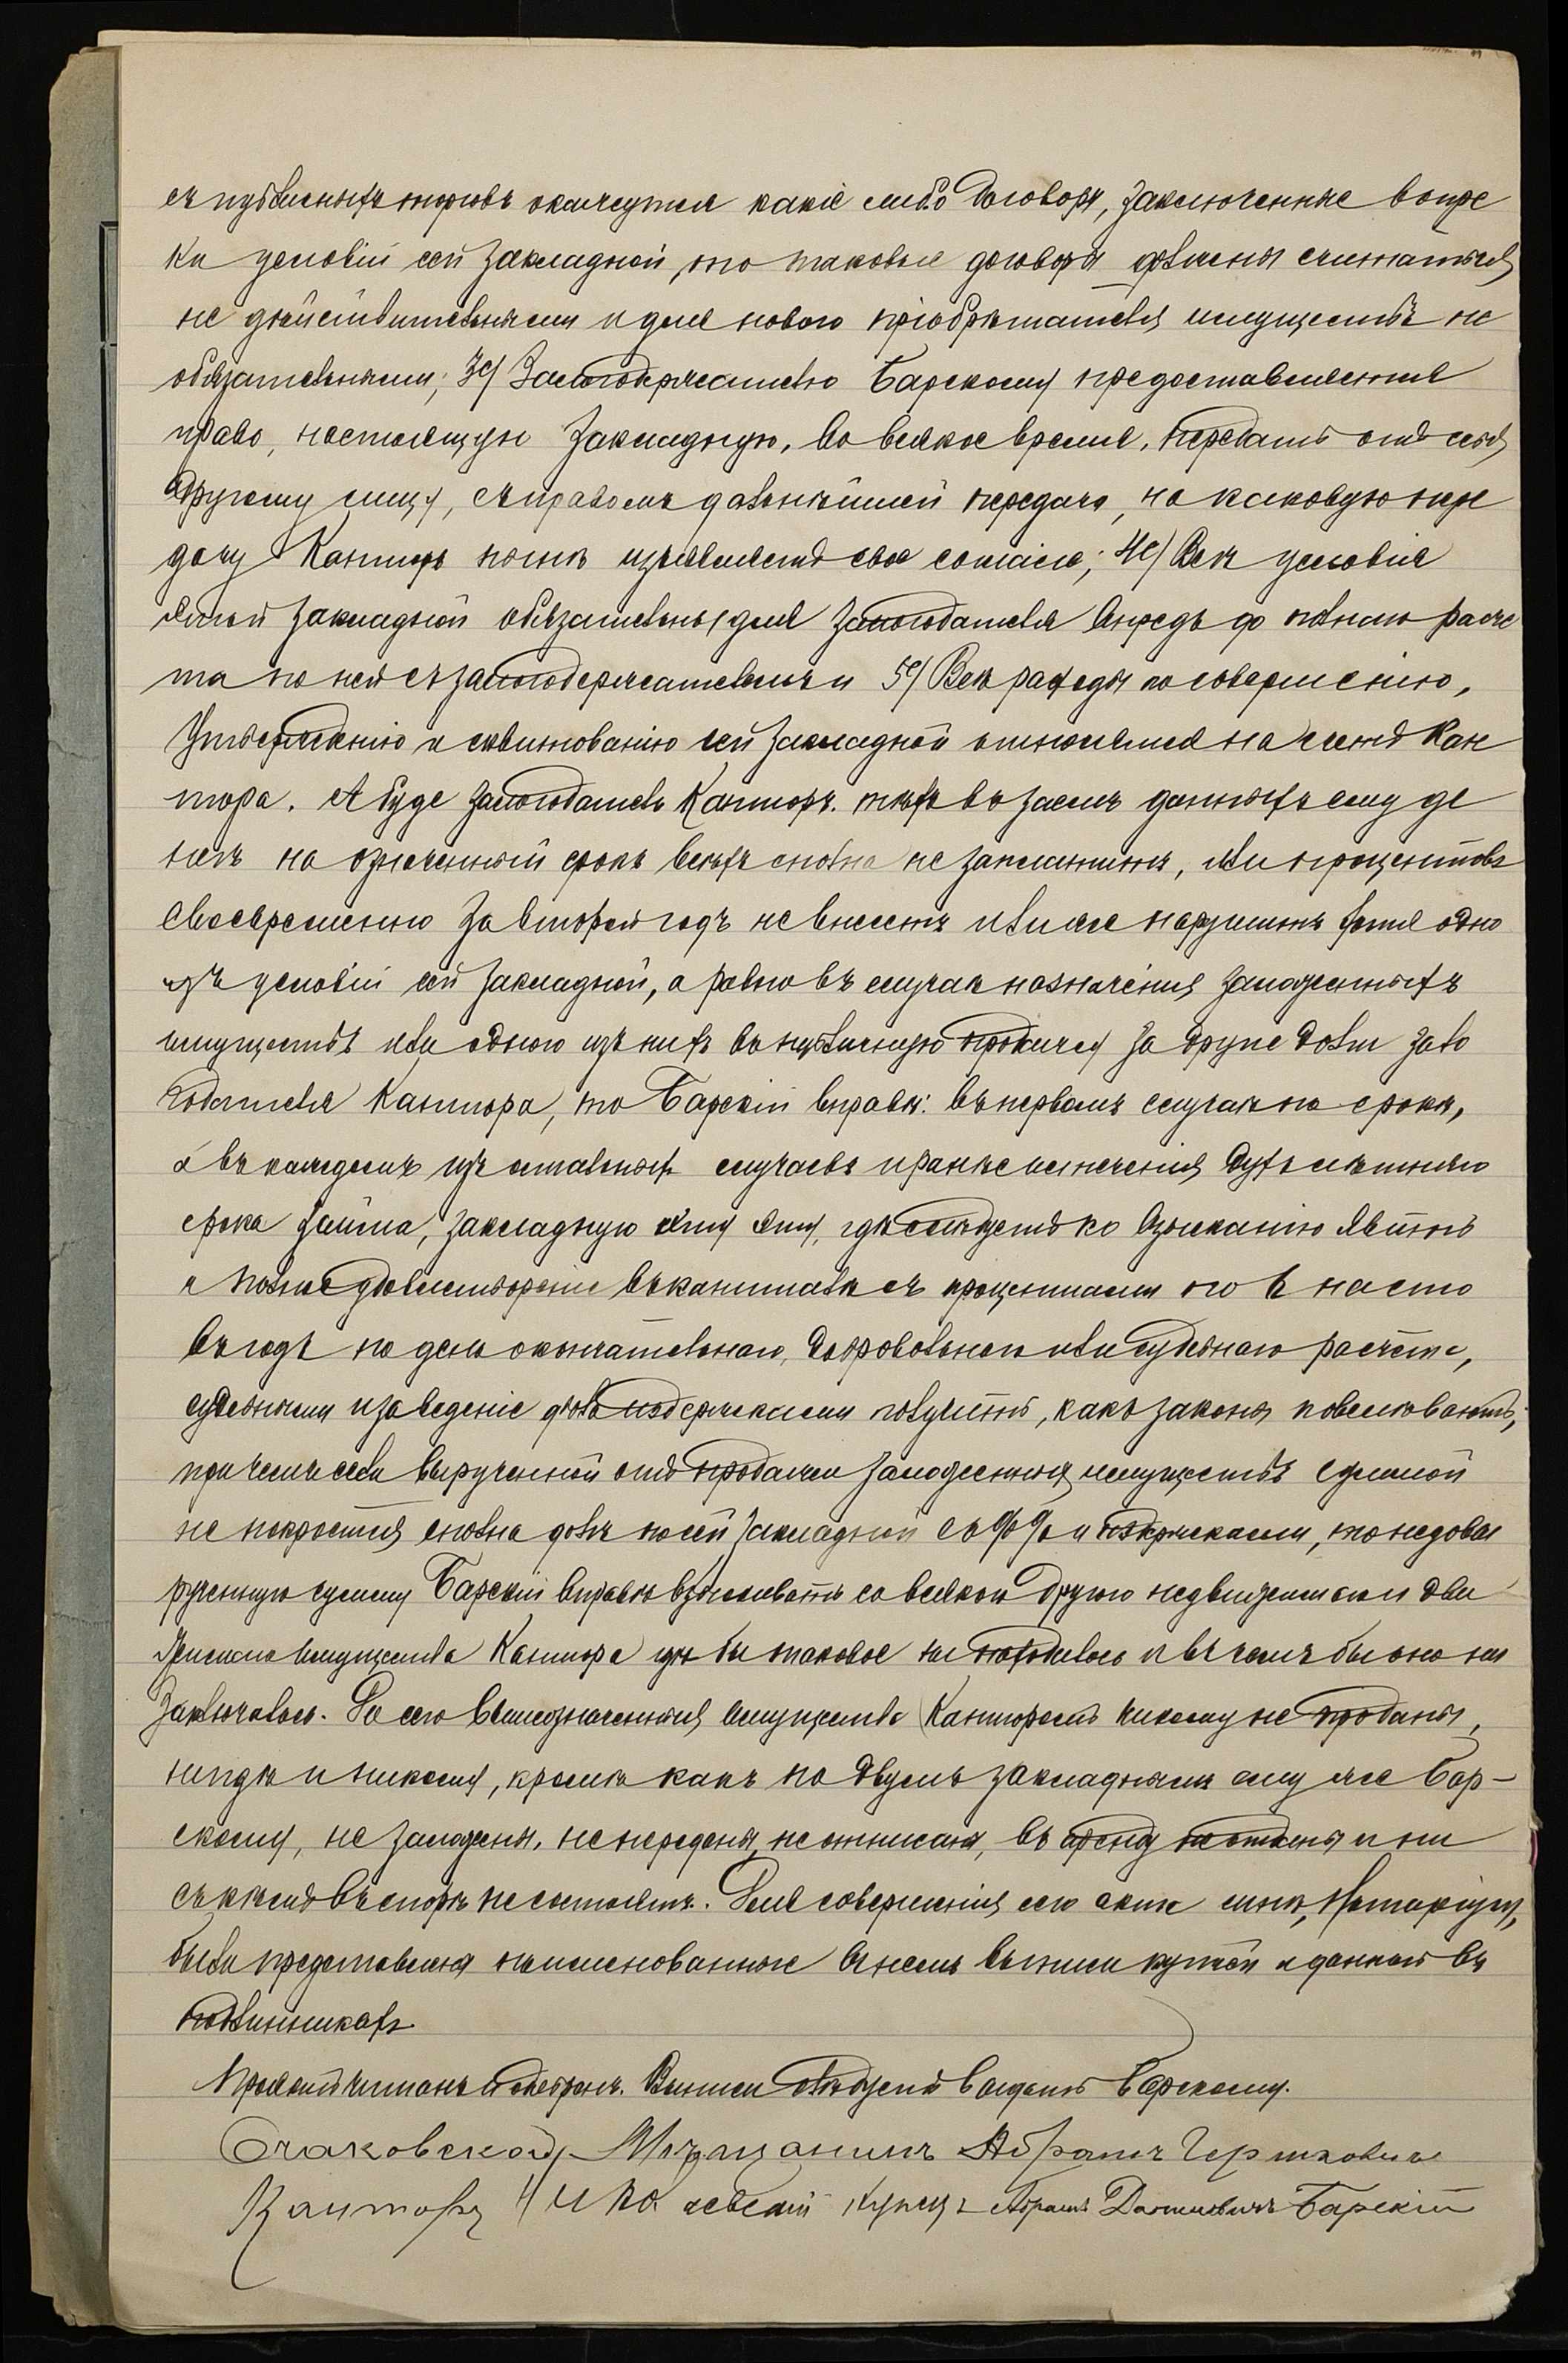 съ публичныхъ торговъ окажутся какіе либо договоры, заключенные вопре
ки условій сей закладной, то таковые договоры должны считаться
не действительными и для новаго пріобрѣтателя имуществъ не
обязательными; 3е/ Залогодержателю Барскому предоставляется
право, настоящую закладную, во всякое время, передать отъ себя
другому лицу, съ правомъ дальнѣйшей передачи, на каковую пере
дачу Канторъ нынѣ изъявляетъ свое согласіе; 4е/ Всѣ условія
этой закладной обязательны для залогодателя впредь до полнаго расче
та по ней съ залогодержателемъ и 5е/ Всѣ расходы по совершенію,
утвержденію и сквитованію сей закладной относятся на счетъ Кан
тора. А буде залогодатель Канторъ, тѣхъ въ заемъ данныхъ ему де
негъ на означенный срокъ всѣхъ сполна не заплатитъ, или процентовъ
своевременно за второй годъ не внесетъ или же нарушитъ хотя одно
изъ условій сей закладной, а равно въ случаѣ назначенія заложенныхъ
имуществъ или одного изъ нихъ въ публичную продажу за другіе долги зало
годателя Кантора, то Барскій вправѣ: въ первомъ случаѣ по срокѣ,
а въ каждомъ изъ остальныхъ случаевъ и ранѣе истеченія двухъ лѣтняго
срока займа, закладную эту ему, гдѣ слѣдуетъ ко взысканію явить
и полное удовлетвореніе въ капиталѣ съ процентами по в насто
въ годъ по день окончательнаго, добровольнаго или судебнаго расчета,
судебными и за веденіе дѣла издержками получить, какъ законы повелѣваютъ;
при чемъ если вырученной отъ продажи заложенныхъ имуществъ суммой
не покроется сполна долгъ по сей закладной съ %% и издержками, то недовы
рученную сумму Барскій вправѣ взыскивать со всякаго другого недвижимаго и дви
жимаго имущества Кантора гдѣ бы таковое ни находилось и въ чемъ бы оно ни
заключалось. До сего вышеозначенныя имущества Канторомъ никому не проданы,
нигдѣ и никому, кромѣ какъ по двумъ закладнымъ ему же Бар-
скому, не заложены, не переданы, не отписаны, въ аренду не отданы и ни
съ кѣмъ въ спорѣ не состоятъ. Для совершенія сего акта мнѣ, Нотаріусу,
были представлены поименованныя въ немъ выписи купчей и данной въ
подлинникахъ.
Проектъ читанъ и одобренъ. Выпись слѣдуетъ выдать Барскому.
Очаковской Мѣщанинъ Абрамъ Гершковичъ
Канторъ Николаевскій Купецъ Абрамъ Давидовичъ Барскій